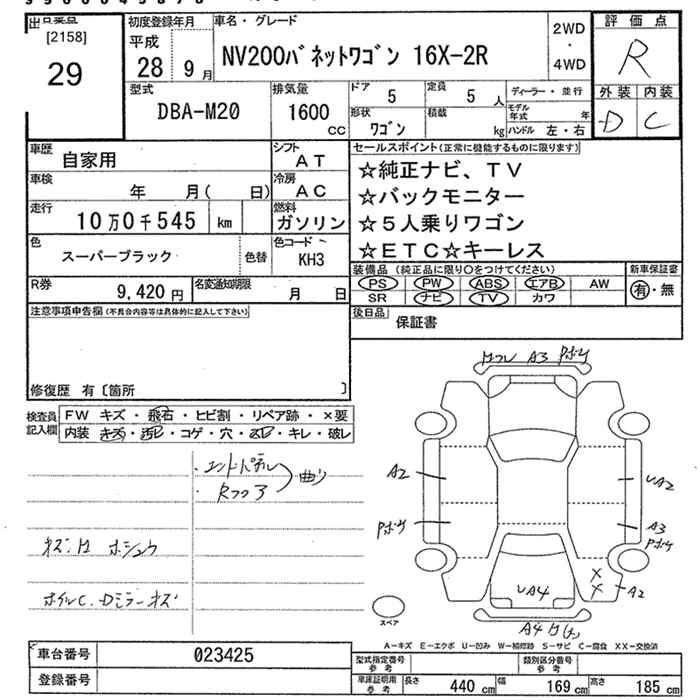 出品票
[2158]
29
初度登録年月
平成
28 9月
車名・グレード
NV200バネットワゴン 16X-2R
2WD
・
4WD
評価点
R
外装 内装
D C
型式
DBA-M20
排気量
1600
CC
ドア 5
定員 5 人
形状 ワゴン
積載 kg
ディーラー・並行
モデル年式 年
ハンドル 左・右
車歴 自家用
シフト AT
車検 年 月( 日)
冷房 AC
走行 10万0千545 km
燃料 ガソリン
色 スーパーブラック
色替
色コード KH3
R券 9,420円
名変通知期限 月 日
セールスポイント(正常に機能するものに限ります)
☆純正ナビ、TV
☆バックモニター
☆5人乗りワゴン
☆ETC☆キーレス
装備品 (純正品に限り〇をつけてください)
新車保証書
PS PW ABS エアB AW
SR ナビ TV カワ
有・無
後日品 保証書
注意事項申告欄(不具合内容等は具体的に記入して下さい)
修復歴 有〔箇所 〕
検査員記入欄
FW キズ・飛石・ヒビ割・リペア跡・×要
内装 キズ・汚レ・コゲ・穴・スレ・キレ・破レ
エンドパネル
Rフロア
曲り
キズ・H ホシュウ
ホイルC. Dミラーキズ
A3 Pボケ
A2
UA2
Pボケ
A3
Pボケ
X
X
A2
UA4
A4
スペア
A-キズ E-エクボ U-凹み W-補修跡 S-サビ C-腐食 XX-交換済
車台番号 023425
登録番号
型式指定番号参考
類別区分番号参考
車庫証明用参考
長さ 440 cm
幅 169 cm
高さ 185 cm